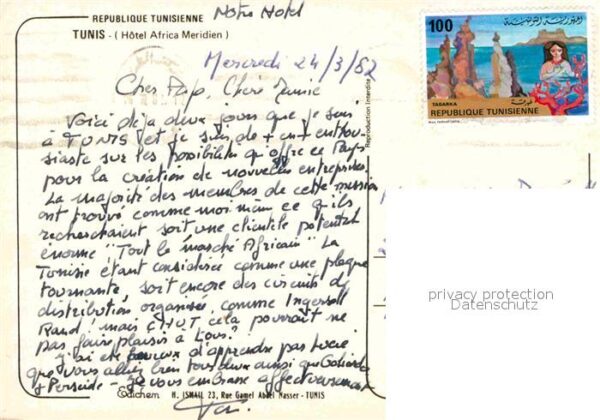 Notre Hotel
REPUBLIQUE TUNISIENNE
TUNIS - (Hôtel Africa Meridien)
Mercredi 24/3/82
Cher Pap, Chère Mamie
Voici déja deux jours que je suis
à TUNIS et je suis de + en + enthou-
siaste sur les possibilités qu'offre ce Pays
pour la création de nouvelles entreprises
La majorité des membres de cette mission
ont trouvé comme moi même ce qu'ils
recherchaient soit une clientèle potentiel
énorme "Tout le marché Africain" La
Tunisie étant considérée comme une plaque
tournante, soit encore des circuits de
distribution organisés comme Ingersoll
Rand, mais CHUT cela pourrait ne
pas faire plaisir à tous!
J'ai été heureux d'apprendre par
que vous alliez bien tous deux ainsi que
+ - Je vous embrasse affectueusement
Edichem H. ISMAIL 23, Rue Gamel Abdel Nasser - TUNIS
Reproduction Interdite
100
TABARKA
REPUBLIQUE TUNISIENNE
الجمهورية التونسية
طبرقة
privacy protection
Datenschutz